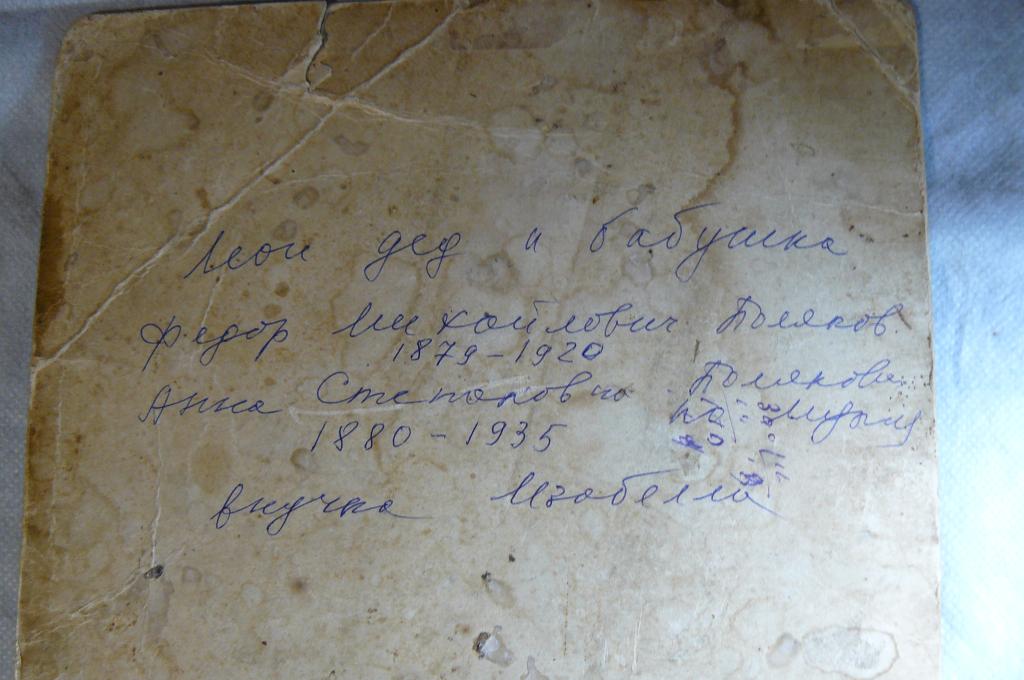 Мои дед и бабушка
Федор Михайлович Поляков.
1879-1920
Анна Степановна Полякова
по мужу
1880-1935
внучка Изабелла